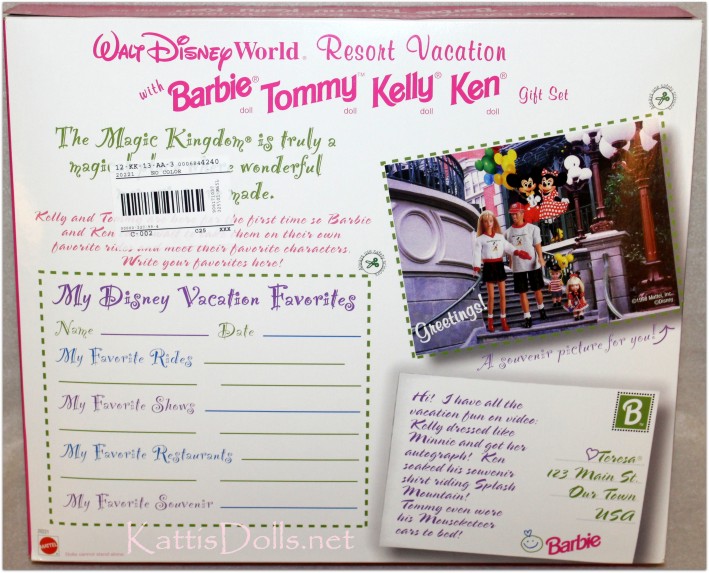 Walt Disney World® Resort Vacation
with Barbie® Tommy™ Kelly® Ken® Gift Set
doll doll doll doll
The Magic Kingdom® is truly a
magic wonderful
made.
12-KK-13-AA-3 0006844240
20221 NO COLOR
C-002 C25 XXX
Kelly and first time so Barbie
and Ken them on their own
favorite and meet their favorite characters.
Write your favorites here!
My Disney Vacation Favorites
Name Date
My Favorite Rides
My Favorite Shows
My Favorite Restaurants
My Favorite Souvenir
Greetings!
©1998 Mattel, Inc.
©Disney
A souvenir picture for you!
Hi! I have all the
vacation fun on video:
Kelly dressed like
Minnie and got her
autograph! Ken
soaked his souvenir
shirt riding Splash
Mountain!
Tommy even wore
his Mouseketeer
ears to bed!
Barbie
B
Teresa®
123 Main St.
Our Town
USA
MATTEL
KattisDolls.net